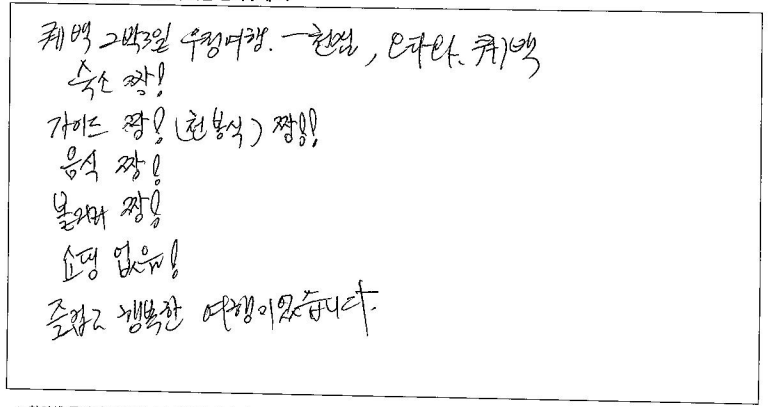 퀘백 2박3일 우정여행. - 천섬, 오타와, 퀘백
숙소 짱!
가이드 짱! (천봉식) 짱!!
음식 짱!
볼거리 짱!
쇼핑 없음!
즐겁고 행복한 여행이었습니다.